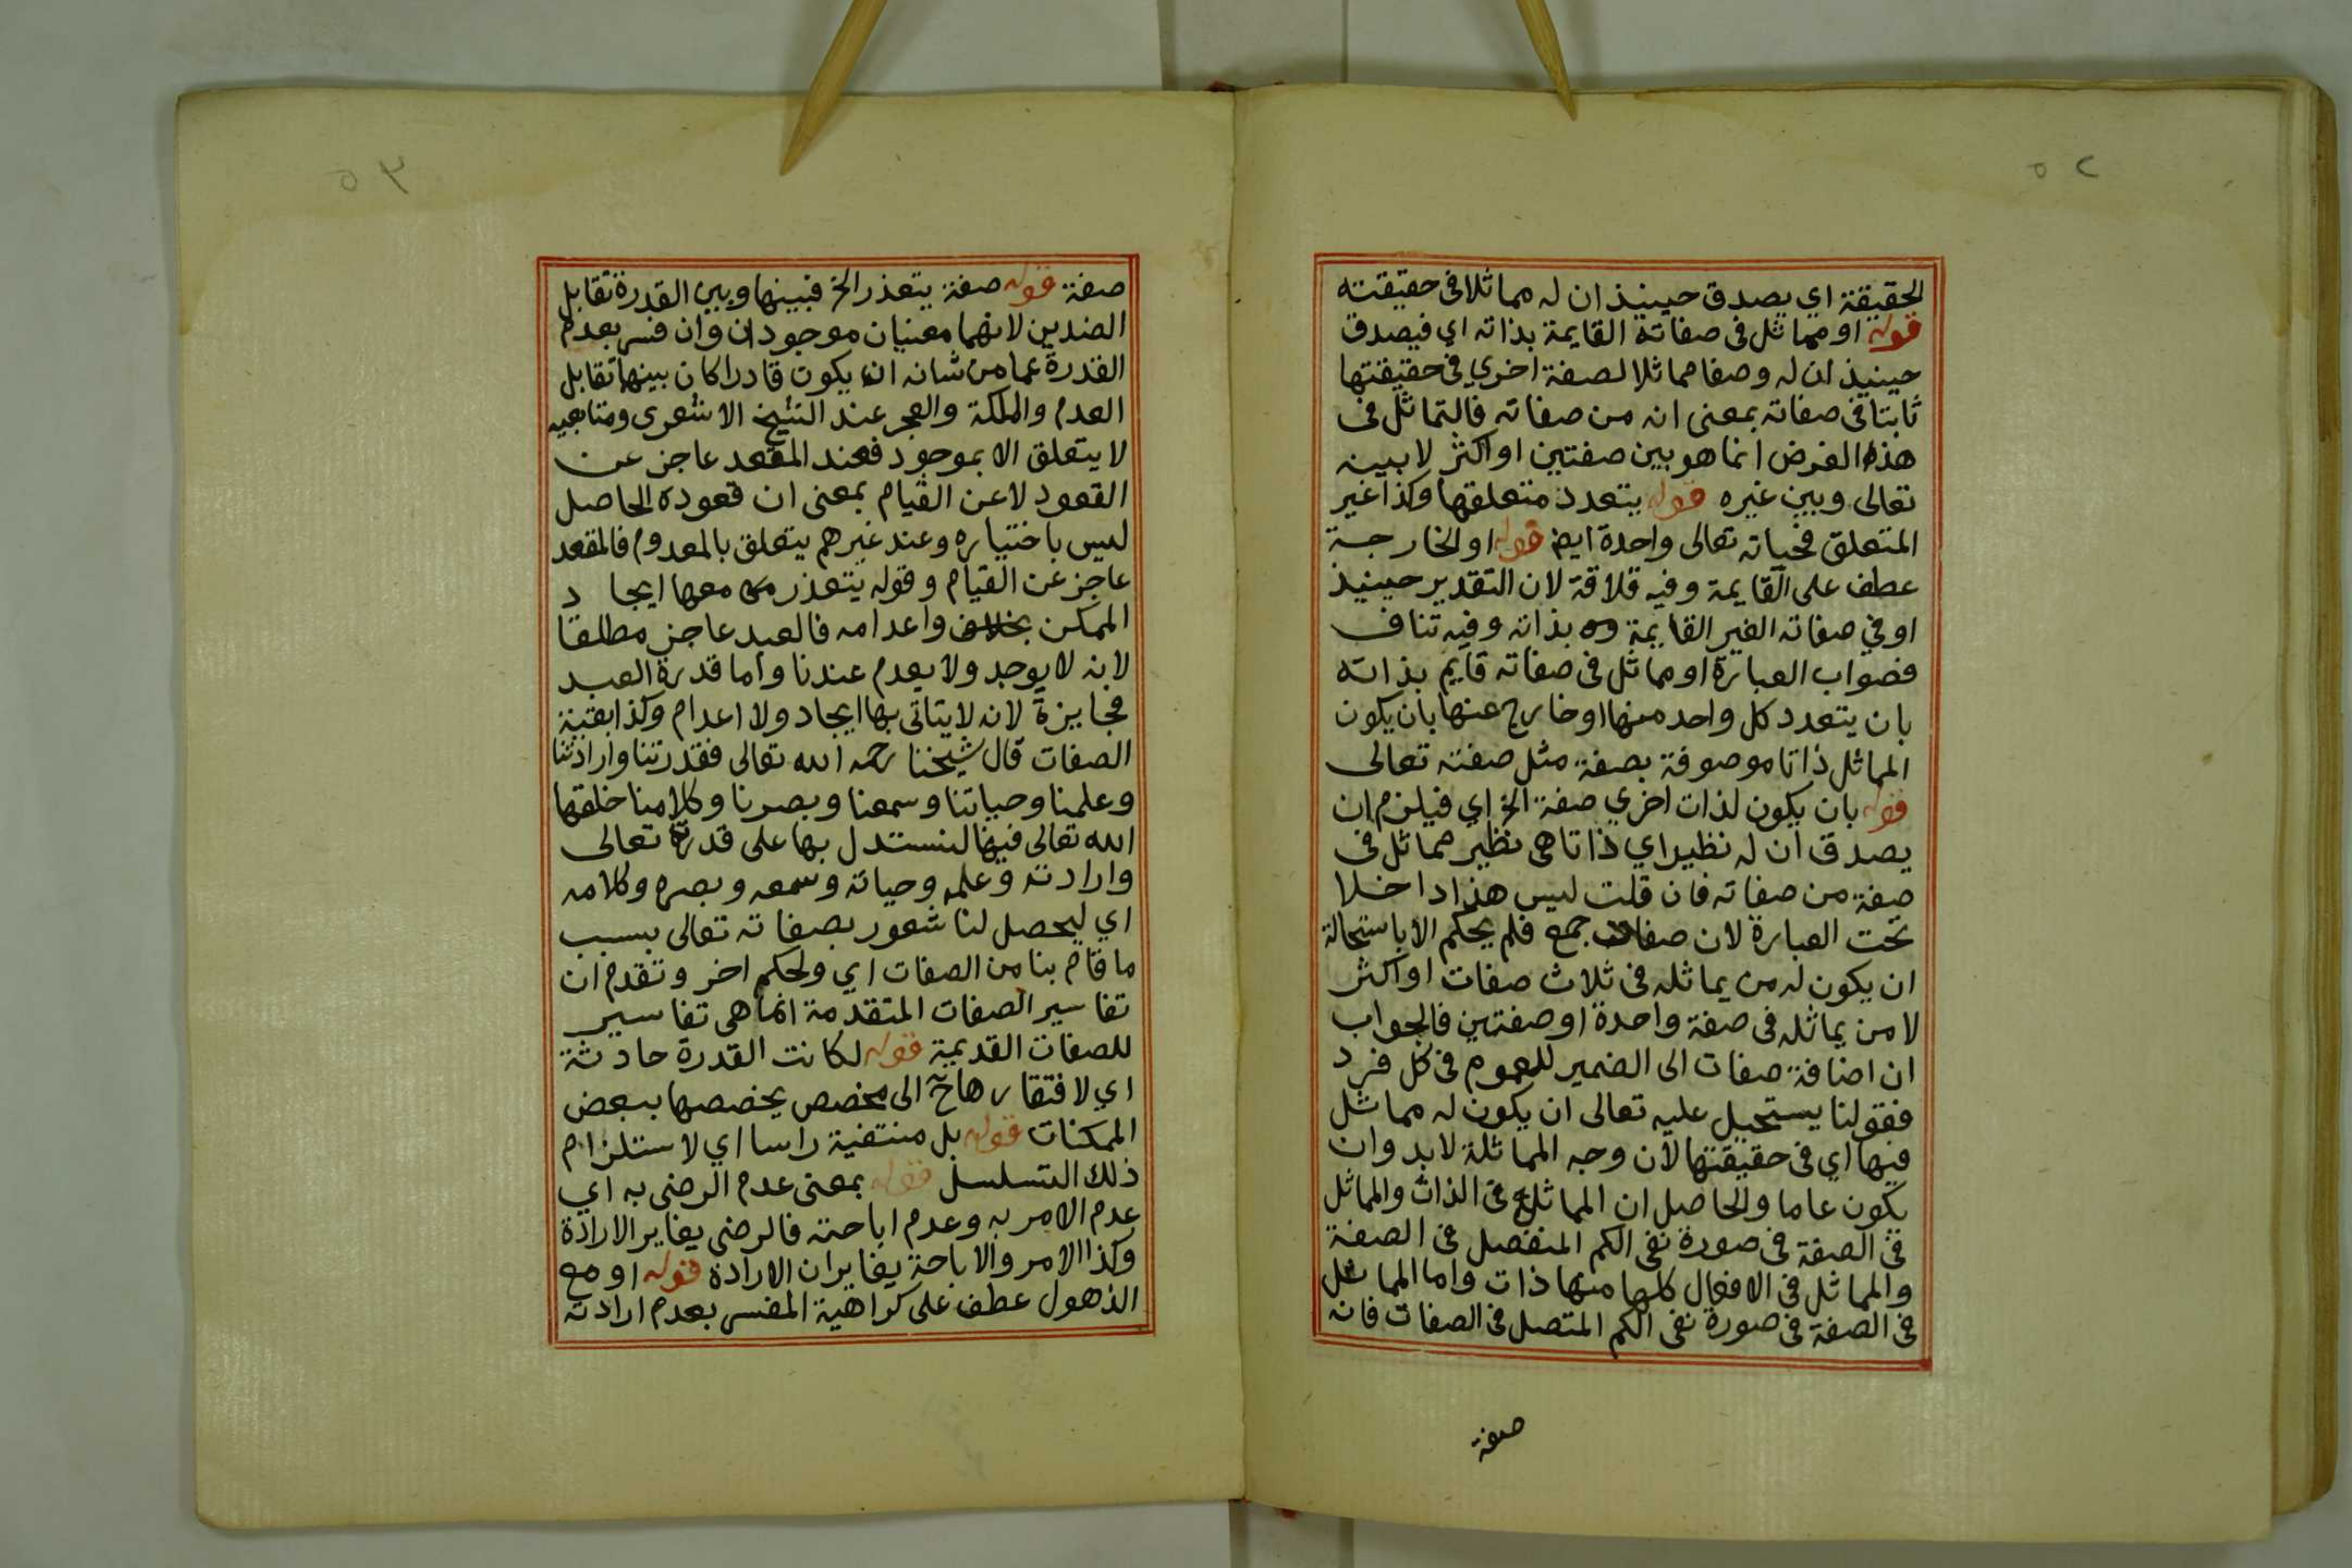 ٥٢
الحقيقة اي يصدق حينيذ ان له مماثلا في حقيقته
قوله او مماثل في صفاته القايمة بذاته اي فيصدق
حينيذ ان له وصفا مماثلا لصفة اخري في حقيقتها
ثابتا في صفاته بمعنى انه من صفاته فالتماثل في
هذه الفرض انما هو بين صفتين او اكثر لا بينه
تعالى وبين غيره قوله يتعدد متعلقها وكذا غير
المتعلق فحياته تعالى واحدة ايض قوله او الخارجة
عطف على القايمة وفيه قلاقة لان التقدير حينيذ
او في صفاته الغير القايمة بذاته وفيه تناف
فصواب العبارة او مماثل في صفاته قايم بذاته
بان يتعدد كل واحد منها او خارج عنها بان يكون
المماثل ذاتا موصوفة بصفة مثل صفته تعالى
قوله بان يكون لذات اخري صفة الخ اي فيلزم ان
يصدق ان له نظير اي ذاتا هي نظير مماثل في
صفة من صفاته فان قلت ليس هذا داخلا
تحت العبارة لان صفات جمع فلم يحكم الا باستحالة
ان يكون له من يماثله في ثلاث صفات او اكثر
لا من يماثله في صفة واحدة او صفتين فالجواب
ان اضافة صفات الى الضمير للعموم في كل فرد
فقولنا يستحيل عليه تعالى ان يكون له مماثل
فيها اي في حقيقتها لان وجه المماثلة لابد وان
يكون عاما والحاصل ان المماثل في الذات والمماثل
في الصفة في صورة نفي الكم المنفصل في الصفة
والمماثل في الافعال كلها منها ذات واما المماثل
في الصفة في صورة نفي الكم المتصل في الصفات فانه
صفة
٥٣
صفة قوله صفة يتعذر الخ فبينها وبين القدرة تقابل
الضدين لانهما معنيان موجودان وان فسر بعدم
القدرة عما من شانه ان يكون قادرا كان بينهما تقابل
العدم والملكة والعجر عند الشيخ الاشعرى ومتابعيه
لا يتعلق الا بموجود فعند المقعد عاجز عن
القعود لا عن القيام بمعنى ان قعوده الحاصل
ليس باختياره وعند غيرهم يتعلق بالمعدوم فالمقعد
عاجز عن القيام وقوله يتعذر معها ايجاد
الممكن واعدامه فالعبد عاجز مطلقا
لانه لا يوجد ولا يعدم عندنا واما قدرة العبد
فجايزة لانه لا يتاتى بها ايجاد ولا اعدام وكذا بقية
الصفات قال شيخنا رحمه الله تعالى فقدرتنا وارادتنا
وعلمنا وحياتنا وسمعنا وبصرنا وكلامنا خلقها
الله تعالى فينا لنستدل بها على قدرته تعالى
وارادته وعلمه وحياته وسمعه وبصره وكلامه
اي ليحصل لنا شعور بصفاته تعالى بسبب
ما قام بنا من الصفات اي ولحكم اخر وتقدم ان
تفاسير الصفات المتقدمة انما هى تفاسير
للصفات القديمة قوله لكانت القدرة حادثة
اي لافتقارها ح الى مخصص يخصصها ببعض
الممكنات قوله بل منتفية راسا اي لاستلزام
ذلك التسلسل قوله بمعنى عدم الرضى به اي
عدم الامر به وعدم اباحته فالرضى يغاير الارادة
وكذا الامر والاباحة يغايران الارادة قوله او مع
الذهول عطف على كراهية المفسر بعدم ارادته